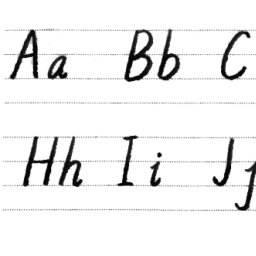 Aa Bb C
Hh Ii Jj